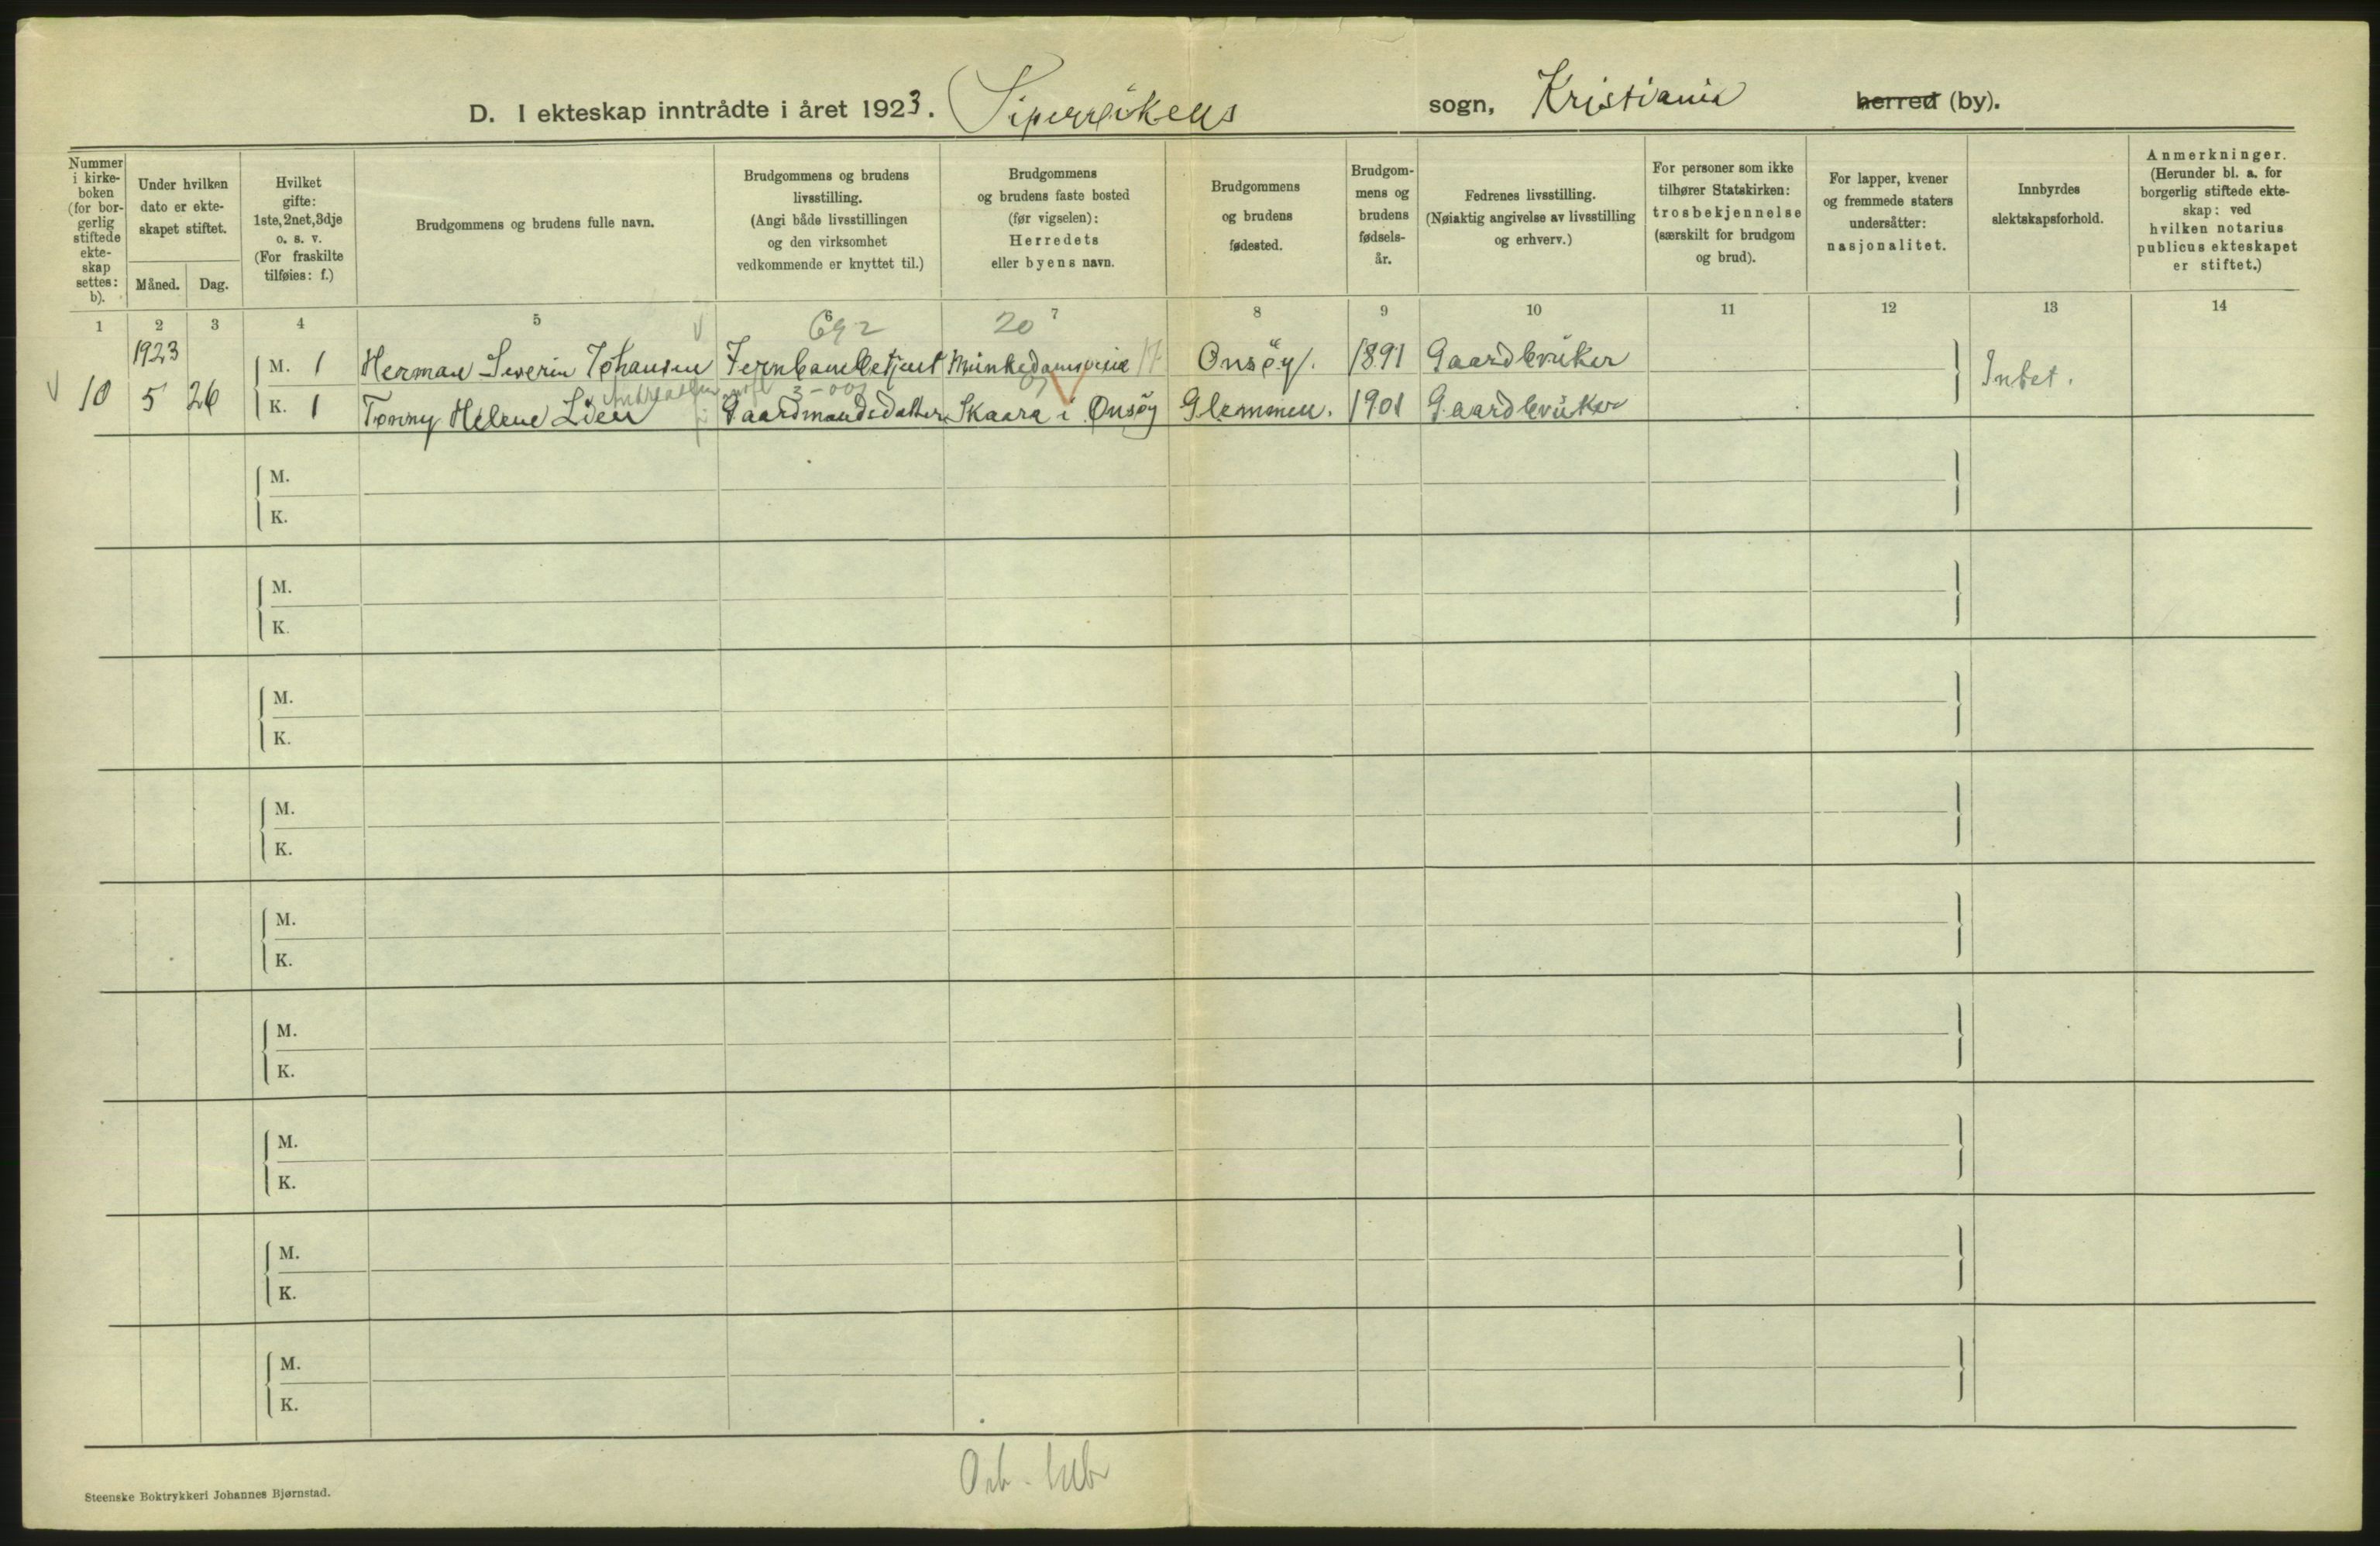 D. I ekteskap inntrådte i året 1923.
sogn, Kristiania herred (by).
Nummer i kirke-boken (for bor-gerlig stiftede ekte-skap settes: b).
Under hvilken dato er ekte-skapet stiftet.
Måned. Dag.
Hvilket gifte: 1ste, 2net, 3dje o. s. v. (For fraskilte tilføies: f.)
Brudgommens og brudens fulle navn.
Brudgommens og brudens livsstilling. (Angi både livsstillingen og den virksomhet vedkommende er knyttet til.)
Brudgommens og brudens faste bosted (før vigselen): Herredets eller byens navn.
Brudgommens og brudens fødested.
Brudgom-mens og brudens fødsels-år.
Fedrenes livsstilling. (Nøiaktig angivelse av livsstilling og erhverv.)
For personer som ikke tilhører Statskirken: trosbekjennelse (særskilt for brudgom og brud).
For lapper, kvener og fremmede staters undersåtter: nasjonalitet.
Innbyrdes slektskapsforhold.
Anmerkninger. (Herunder bl. a. for borgerlig stiftede ekte-skap: ved hvilken notarius publicus ekteskapet er stiftet.)
1 2 3 4 5 6 7 8 9 10 11 12 13 14
1923 692 20
M. 1 Herman Severin Johansen Jernbanebetjent Munkedamsveien 17 Onsøy. 1891 Gaardbruker
10 5 26 Intet.
3-00
K. 1 Tonny Helene Lien Gaardmandsdatter Skaara i Onsøy Glemmen. 1901 Gaardbruker
M.
K.
M.
K.
M.
K.
M.
K.
M.
K.
M.
K.
M.
K.
M.
K.
M.
K.
Steenske Boktrykkeri Johannes Bjørnstad.